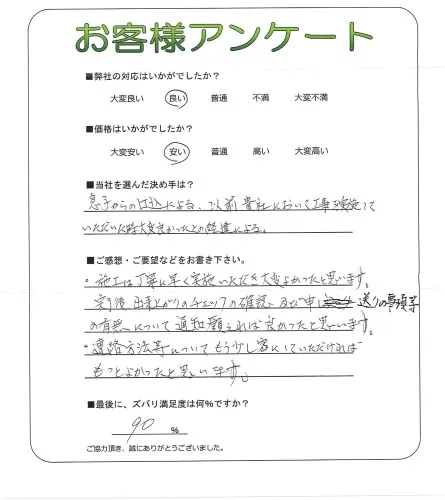 お客様アンケート
■弊社の対応はいかがでしたか？
大変良い 良い 普通 不満 大変不満
■価格はいかがでしたか？
大変安い 安い 普通 高い 大変高い
■当社を選んだ決め手は？
息子からの による、以前貴社において工事実施して
いただいた時大変良かったとの経違による。
■ご感想・ご要望などをお書き下さい。
・施工は丁寧に早く実施いただき大変よかったと思います。
完了後 出来上がりのチェックの確認 及び申し送りの事項等
の有無について通知願えれば良かったと思います。
・連絡方法等についてもう少し密にしていただければ
もっとよかったと思います。
■最後に、ズバリ満足度は何%ですか？
90 %
ご協力頂き、誠にありがとうございました。